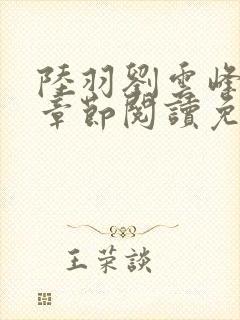 陸羽劉雲峰
章節閱讀免
王荣談